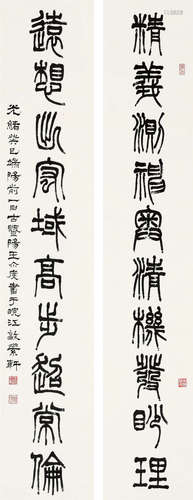 精義測神奧清機發眇理
遠想出宏域高步超常倫
光緒癸巳端陽前一日古暨陽王介度書于皖江啟紫軒